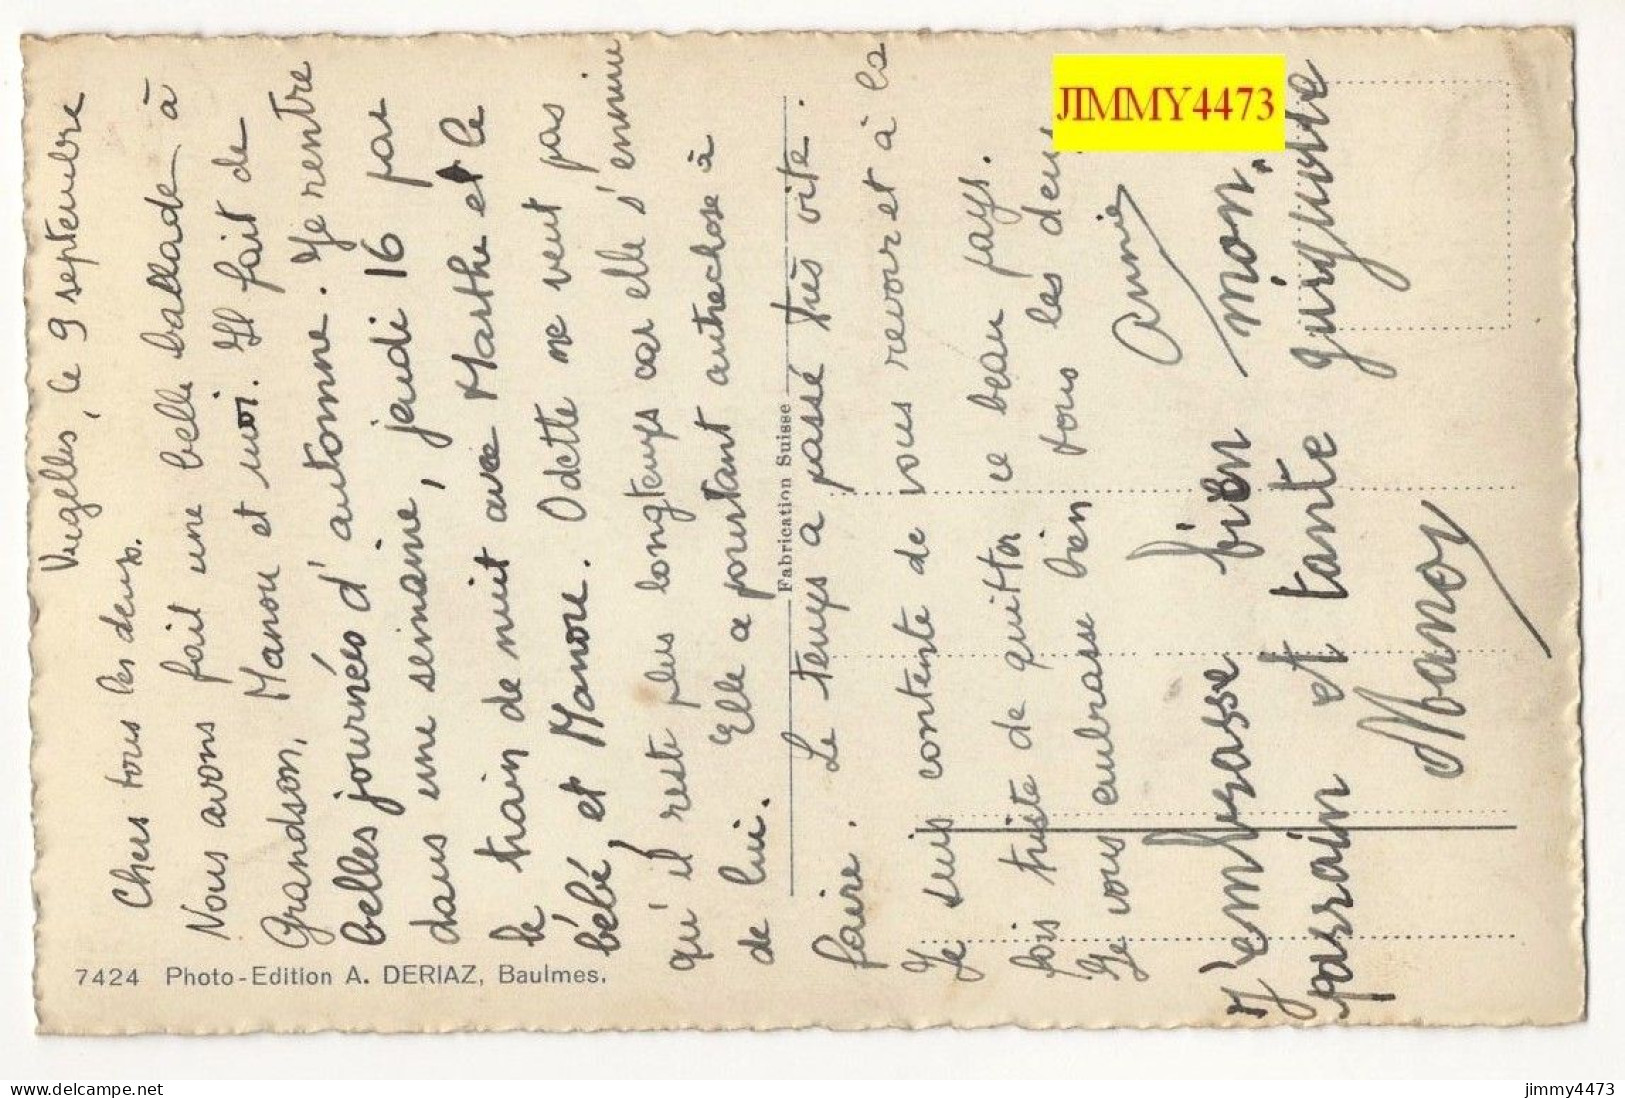 Vugelles, le 9 septembre
Chers tous les deux.
Nous avons fait une belle ballade à
Grandson, Manou et moi. Il fait de
belles journées d'automne. Je rentre
dans une semaine, jeudi 16 par
le train de nuit avec Marthe et le
bébé, et Manou. Odette ne veut pas
qu'il reste plus longtemps car elle s'ennuie
de lui. Elle a pourtant autrechose à
faire. Le temps a passé très vite.
Je suis contente de vous revoir et à la
fois triste de quitter ce beau pays.
Je vous embrasse bien tous les deux
Annie
J'embrasse bien mon
parrain et tante guiguitte
Manou
Fabrication Suisse
7424 Photo-Edition A. DERIAZ, Baulmes.
JIMMY4473
delcampe.net
jimmy4473